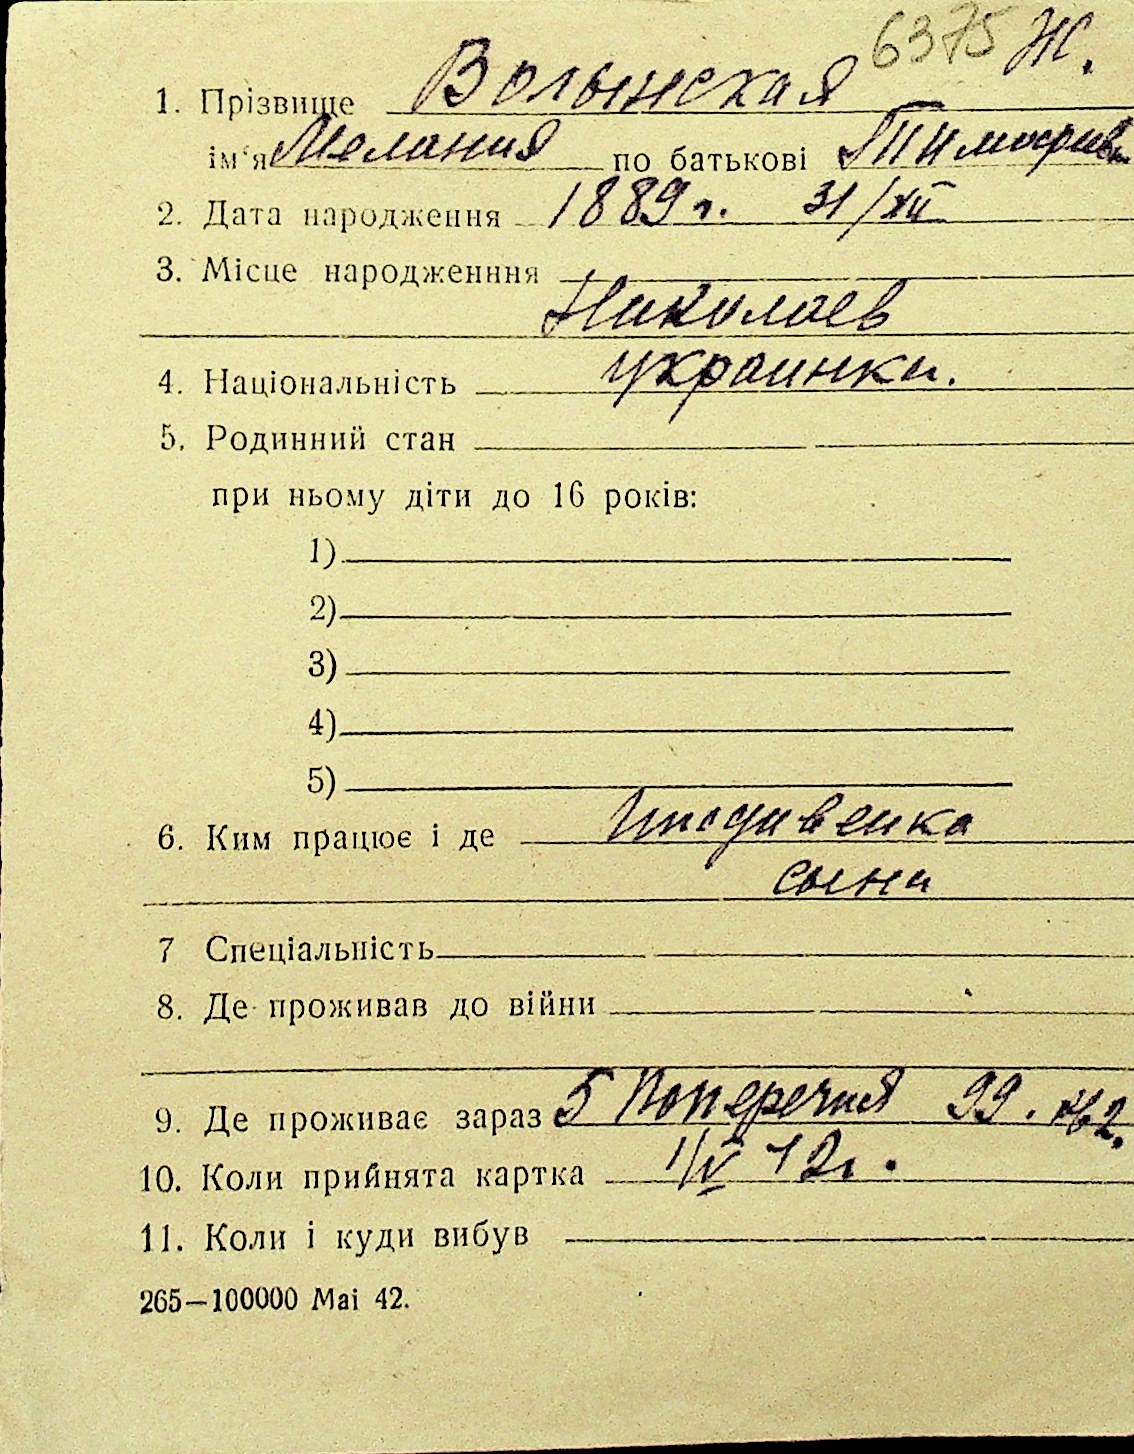 6375 Ж.
1. Прізвище Волынская
ім'я Мелания по батькові Тимофеевн
2. Дата народження 1889 г. 31/XII
3. Місце народженння
Николаев
4. Національність украинка.
5. Родинний стан
при ньому діти до 16 років:
1)
2)
3)
4)
5)
6. Ким працює і де Иждивенка
сына
7 Спеціальність
8. Де проживав до війни
9. Де проживає зараз 5 Поперечная 99. кв 2.
10. Коли прийнята картка 1/V 42 г.
11. Коли і куди вибув
265—100000 Mai 42.